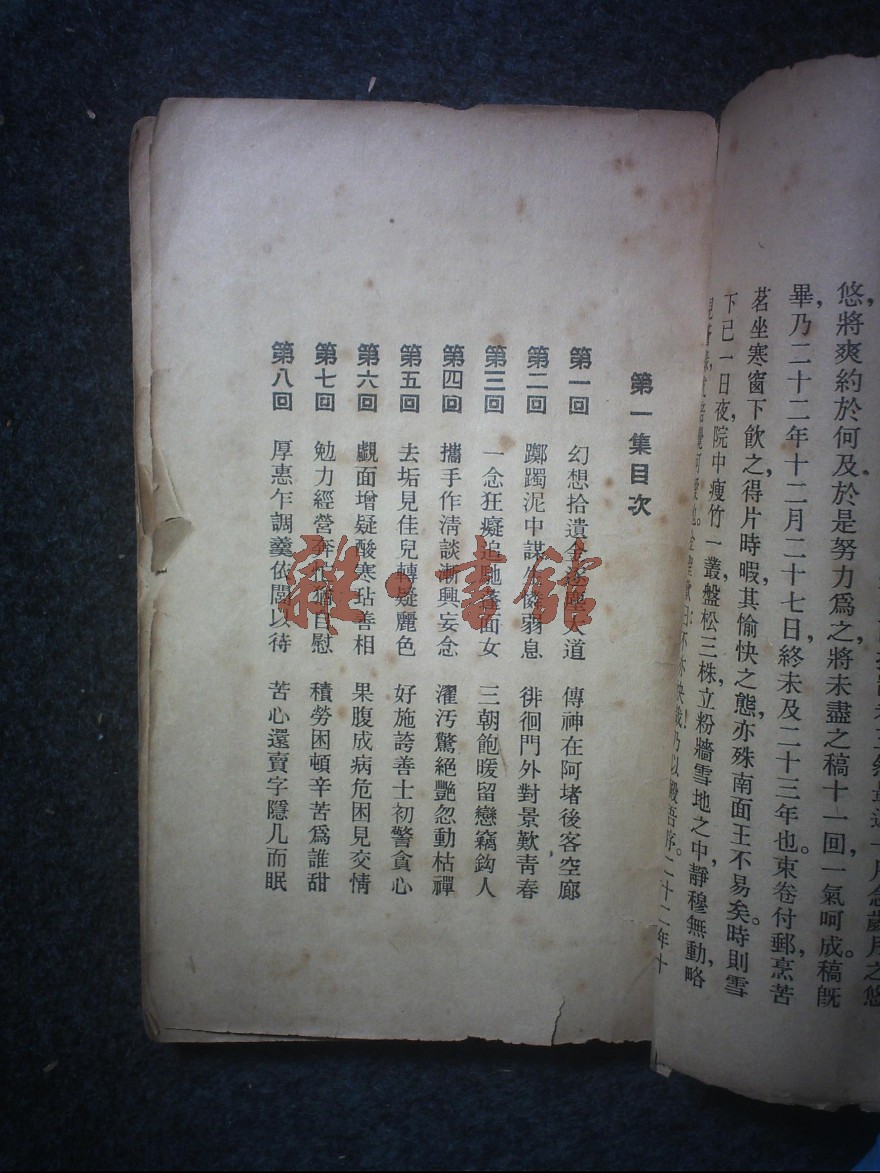 悠將爽約於何及於是努力爲之，將未盡之稿十一回，一氣呵成。稿旣
畢，乃二十二年十二月二十七日，終未及二十三年也。束卷付郵，烹苦
茗坐寒窗下飲之，得片時暇，其愉快之態，亦殊南面王不易矣。時則雪
下已一日夜，院中瘦竹一叢，盤松三株，立粉牆雪地之中，靜穆無動，略
乃以殿吾序。二十二年十
第一集目次
第一回 幻想拾遺金逐塵大道 傳神在阿堵後客空廊
第二回 躑躅泥中謀生憐弱息 徘徊門外對景歎青春
第三回 一念狂癡追馳蓬面女 三朝飽暖留戀竊鈎人
第四回 攜手作清談漸興妄念 濯汚驚絕艷忽動枯禪
第五回 去垢見佳兒轉疑麗色 好施誇善士初警貪心
第六回 覷面增疑酸寒玷善相 果腹成病危困見交情
第七回 勉力經營奔忙猶自慰 積勞困頓辛苦爲誰甜
第八回 厚惠乍調羹依閭以待 苦心還賣字隱几而眠
雜·書館